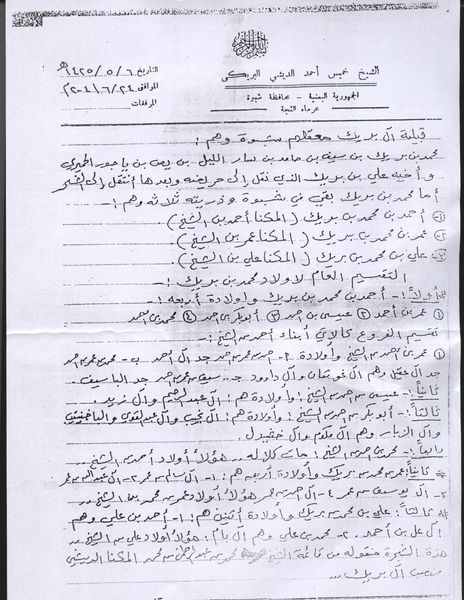 الشيخ خميس أحمد الديشي البريكي
الجمهورية اليمنية - محافظة شبوة
عرماء الشيخة
التاريخ ٦/ ٥/ ١٤٢٥هـ
الموافق ٢٤/ ٦/ ٢٠٠٤
المرفقات
قبيلة آل بريك معقلهم شبوة وهم:
محمد بن بريك بن سيف بن حامد بن سار الليل بن يعن بن ياجور الحميري
وأخيه علي بن بريك الذي نقل إلى حريضه وبعدها أنتقل إلى الشحر
أما محمد بن بريك بقي في شبوة وذريته ثلاثه وهم:-
١- أحمد بن محمد بن بريك (المكنا أحمد بن الشيخ).
٢- عمر بن محمد بن بريك (المكنا عمر بن الشيخ).
٣- علي بن محمد بن بريك (المكنا علي بن الشيخ).
التقسيم العام لأولاد محمد بن بريك:-
أولاً:- أحمد بن محمد بن بريك وأولادة أربعه:-
① عمر بن أحمد ② عيسى بن أحمد ③ أبوبكر بن أحمد ④ محمد بن أحمد
تقسيم الفروع كالآتي أبناء أحمد بن الشيخ:-
① عمر بن أحمد بن الشيخ وأولادة ٢- أحمد بن عمر بن أحمد جد آل أحمد ب- محمد بن عمر بن أحمد
جد آل عقيل وهم آل وآل داوود ج- سيف بن عمر بن أحمد جد الباسيف.
ثانياً:- عيسى بن أحمد بن الشيخ: وأولادة هم: آل عبدالرحيم وآل زيد.
ثالثاً:- أبوبكر بن أحمد بن الشيخ: وأولادة هم: آل وآل عبدالقوي
وآل الزيار وهم آل وآل
رابعاً:- محمد بن أحمد بن الشيخ: مات كلاله.. هؤلاء أولاد أحمد بن الشيخ..
ثانياً: عمر بن محمد بن بريك وأولادة أربعه هم: ١- آل سالم بن عمر ٢- آل بن عمر
٣- آل يوسف بن عمر ٤- آل أحمد بن عمر هؤلاء أولاد عمر بن محمد بن الشيخ..
ثالثاً: علي بن محمد بن بريك وأولادة أثنين هم: ١- أحمد بن علي وهم
آل علي بن أحمد. ٢- محمد بن علي وهم آل هؤلاء أولاد علي بن الشيخ..
هذة الشجرة منقوله من الشيخ محمد بن محمد المكنا الديشي
آل بريك...